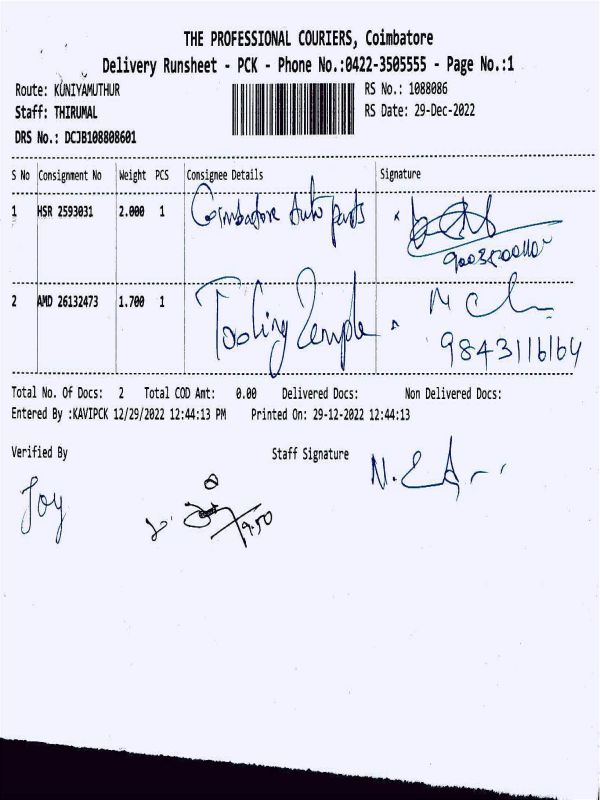 THE PROFESSIONAL COURIERS, Coimbatore
Delivery Runsheet - PCK - Phone No.:0422-3505555 - Page No.:1
Route: KUNIYAMUTHUR RS No.: 1088086
Staff: THIRUMAL RS Date: 29-Dec-2022
DRS No.: DCJB108808601
S No Consignment No Weight PCS Consignee Details Signature
1 HSR 2593031 2.000 1 Coimbatore Auto parts
2 AMD 26132473 1.700 1 Tooling Temple
9843116164
Total No. Of Docs: 2 Total COD Amt: 0.00 Delivered Docs: Non Delivered Docs:
Entered By :KAVIPCK 12/29/2022 12:44:13 PM Printed On: 29-12-2022 12:44:13
Verified By Staff Signature
Joy
9.50